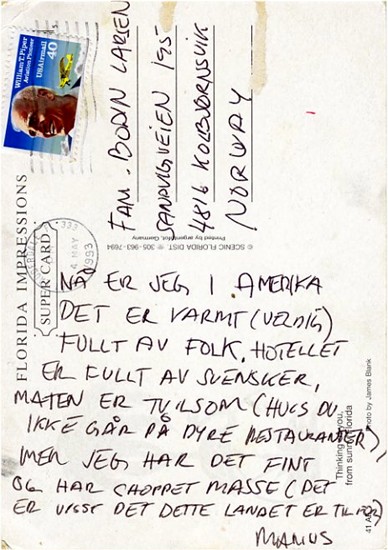 William T. Piper
Aviation Pioneer
USAirmail
40
FAM. BODIN LARSEN
SANDVIGVEIEN 195
4816 KOLBJØRNSVIK
NORWAY
FLORIDA IMPRESSIONS
SUPER CARD
MAY
1993
© SCENIC FLORIDA DIST. 305-963-7694
Printed by Germany
NÅ ER JEG I AMERIKA
DET ER VARMT (VELDIG)
FULLT AV FOLK, HOTELLET
ER FULLT AV SVENSKER,
MATEN ER TVILSOM (HVIS DU
IKKE GÅR PÅ DYRE RESTAURANTER),
MEN JEG HAR DET FINT
OG HAR SHOPPET MASSE (DET
ER VISST DET DETTE LANDET ER TIL FOR)
Thinking of you,
from sunny Florida
Photo by James Blank